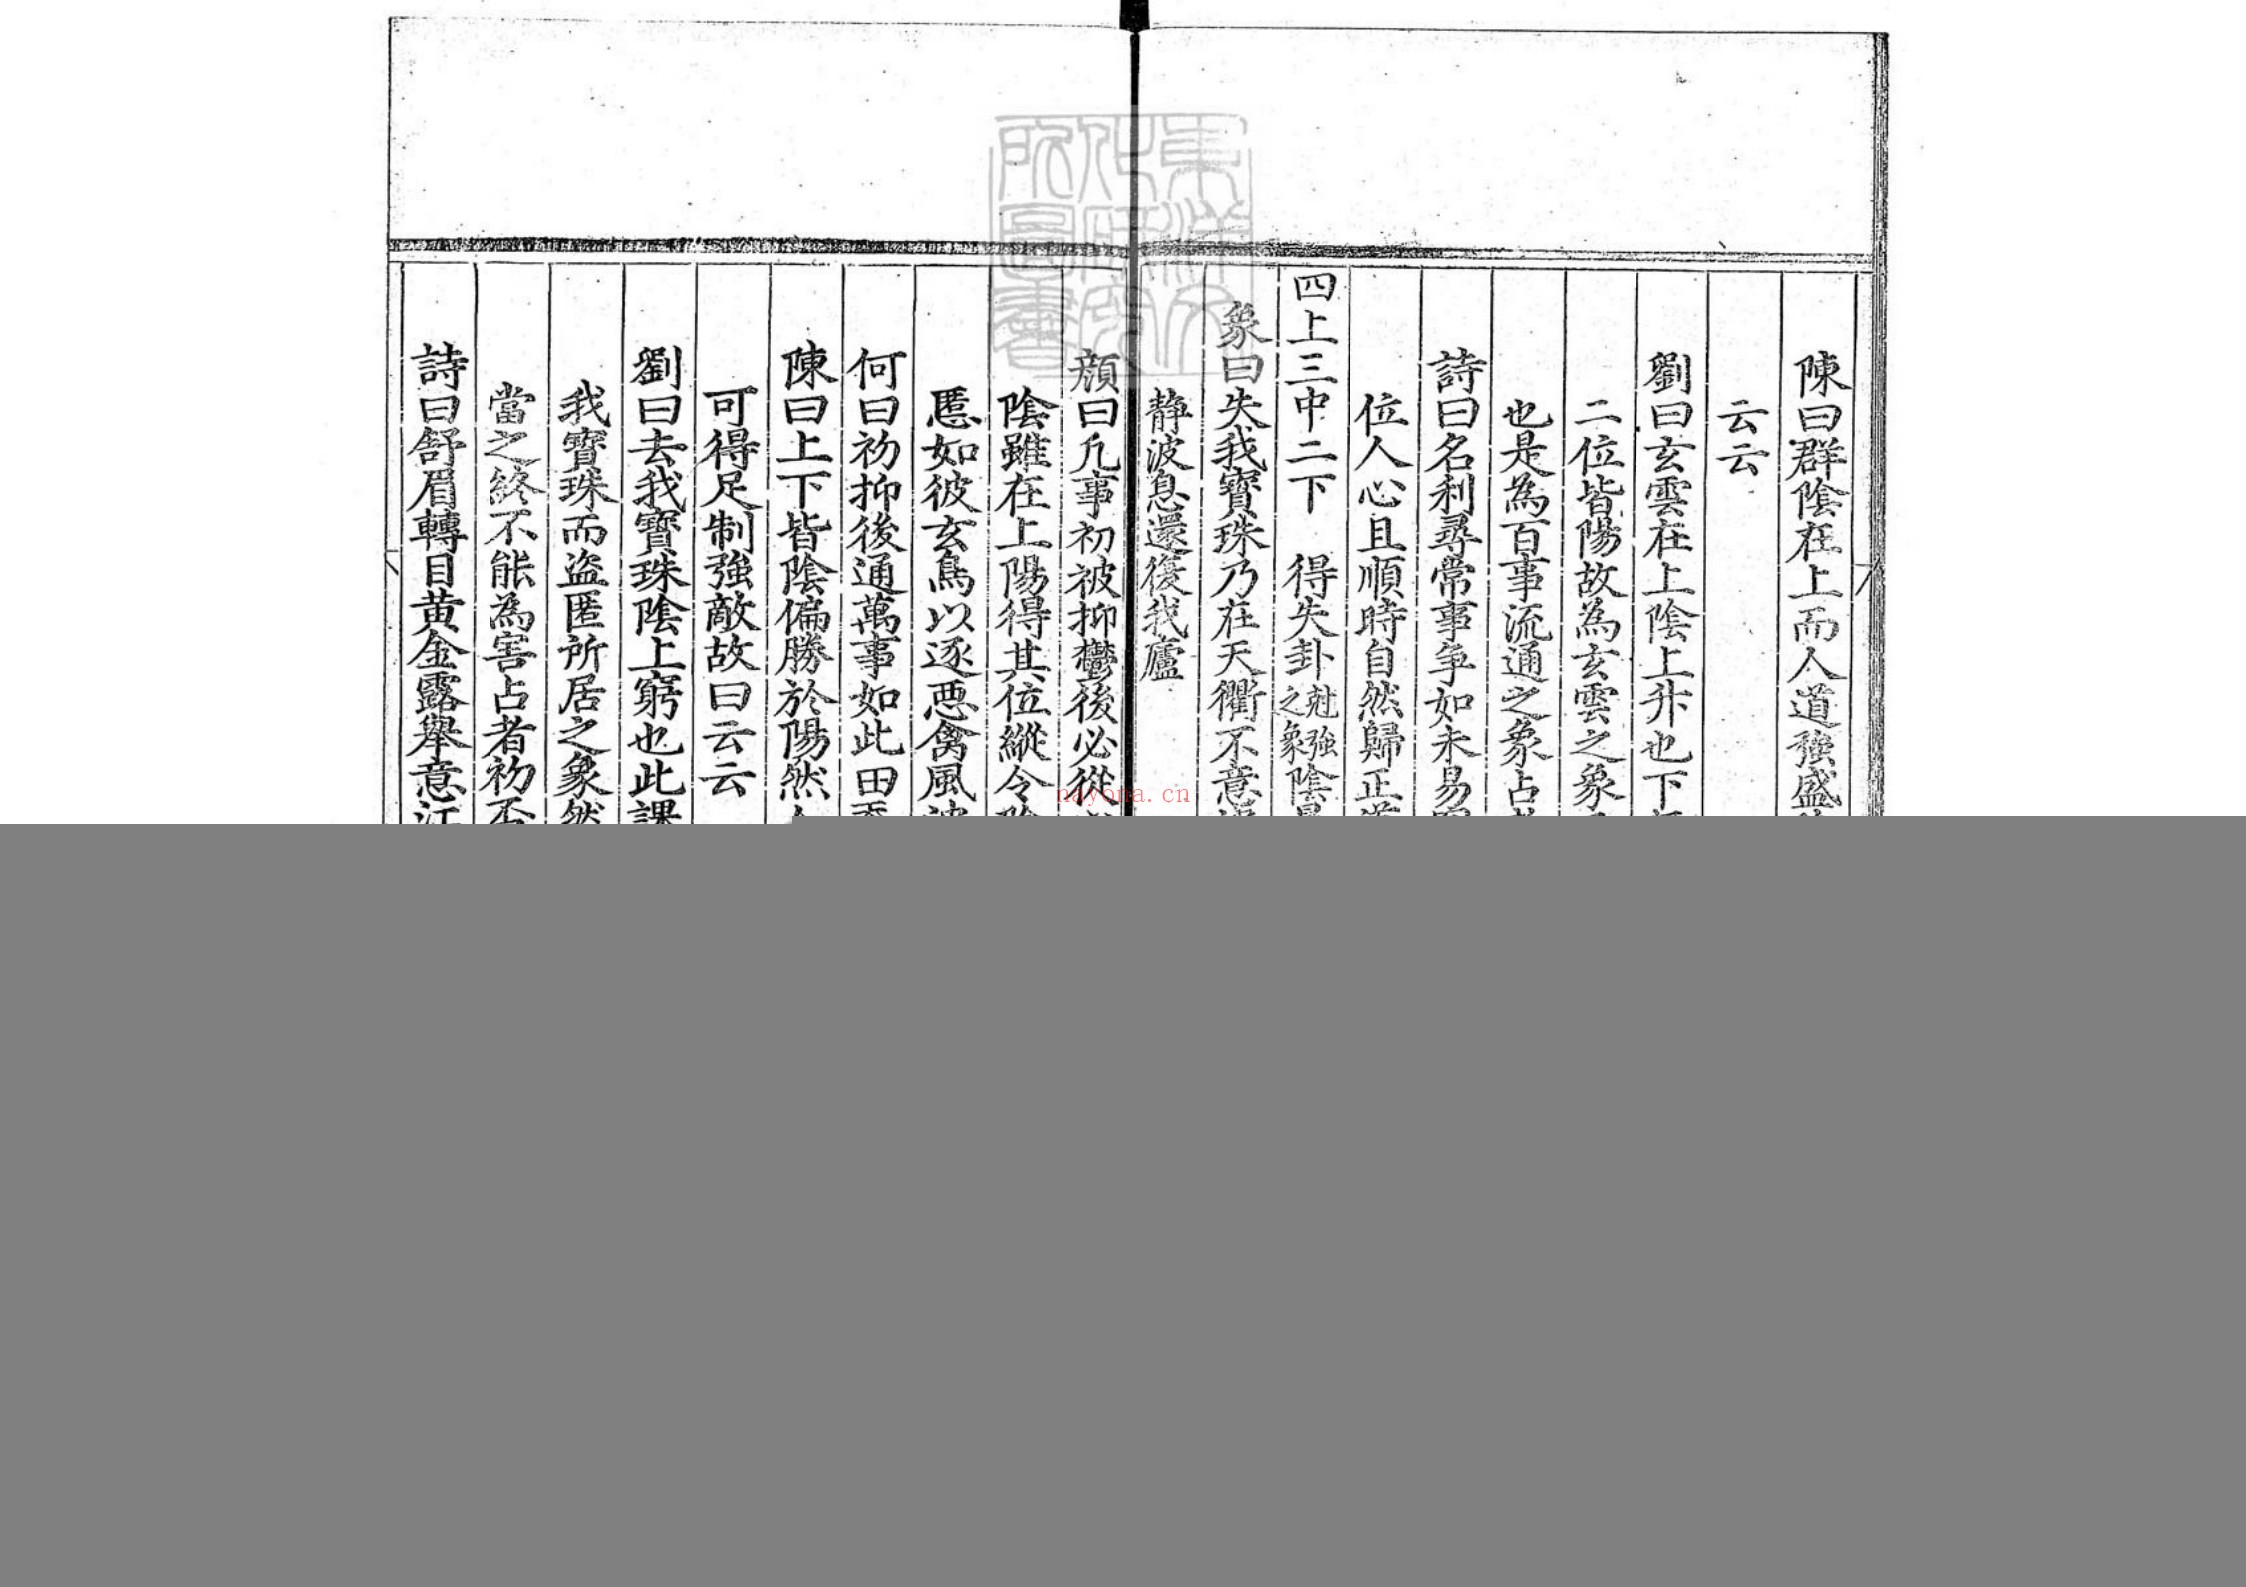 陳曰群陰在上而人道強盛
云云
劉曰玄雲在上陰上升也下
二位皆陽故為玄雲之象
也是為百事流通之象占
詩曰名利尋常事爭如未易
位人心且順時自然歸正
四上三中二下 得失卦 尅強之象 陰
象曰失我寶珠乃在天衢不意
靜波息還復我廬
顔曰凡事初被抑鬱後必從
陰雖在上陽得其位縱令
慝如彼玄鳥以逐惡禽風波
何曰初抑後通萬事如此田
陳曰上下皆陰偏勝於陽然
可得足制強敵故曰云云
劉曰去我寶珠陰上窮也此課
我寶珠而盜匿所居之象然
當之終不能為害占者初否
詩曰舒眉轉目黃金露舉意江
東洋文化研究所圖書
nayona.cn